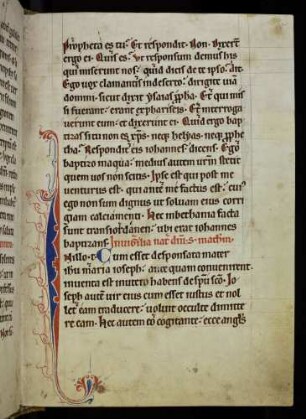 Propheta es tu. Et respondit. Non. Dixert
ergo ei. Quis es. Ut responsum demus his
qui miserunt nos. quid dicis de te ipso. Ait.
Ego vox clamantis in deserto. dirigite viā
domini. sicut dixit ysaias ꝓpha. Et qui mis
si fuerant. erant ex phariseis. Et interroga
verunt eum. et dixerunt ei. Quid ergo bap
tizas si tu non es xp̄s. neqꝫ helyas. neqꝫ ꝓphe
tha. Respondit eis iohannes dicens. Ego
baptizo in aqua. medius autem vr̄m stetit
quem vos non scitis. Ipse est qui post me
venturus est. qui ante me factus est. cuius
ego non sum dignus ut soluam eius corri
giam calciamenti. Hec in bethania facta
sunt trans iordanen. ubi erat iohannes
baptizans. In vigilia nat̄ dn̄i. S. math̄m.
In illo t̄. Cum esset desponsata mater
ihu maria ioseph. antequam convenirent.
inventa est in utero habens de sp̄u sc̄o. Io
seph aut̄ vir eius cum esset iustus et nol
let eam traducere. voluit occulte dimitte
re eam. Hec autem eo cogitante. ecce angl̄s